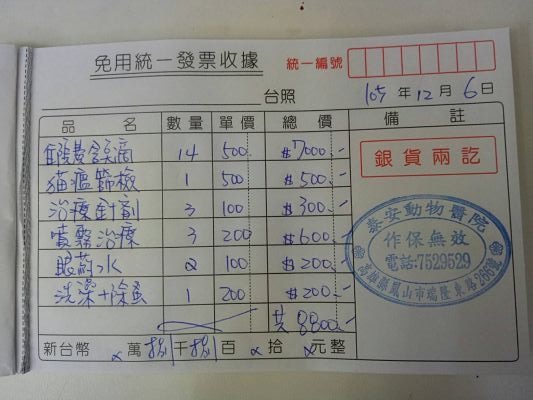 免用統一發票收據
統一編號
台照
105年12月6日
品名 數量 單價 總價 備註
14 500 $7000.-
貓瘟篩檢 1 500 $500.-
治療針劑 3 100 $300.-
噴霧治療 3 200 $600.-
眼药水 2 100 $200.-
洗澡+除蚤 1 200 $200.-
共8800.-
新台幣 萬捌千捌百 拾 元整
銀貨兩訖
泰安動物醫院
作保無效
電話:7529529
高雄縣鳳山市瑞隆東路266號